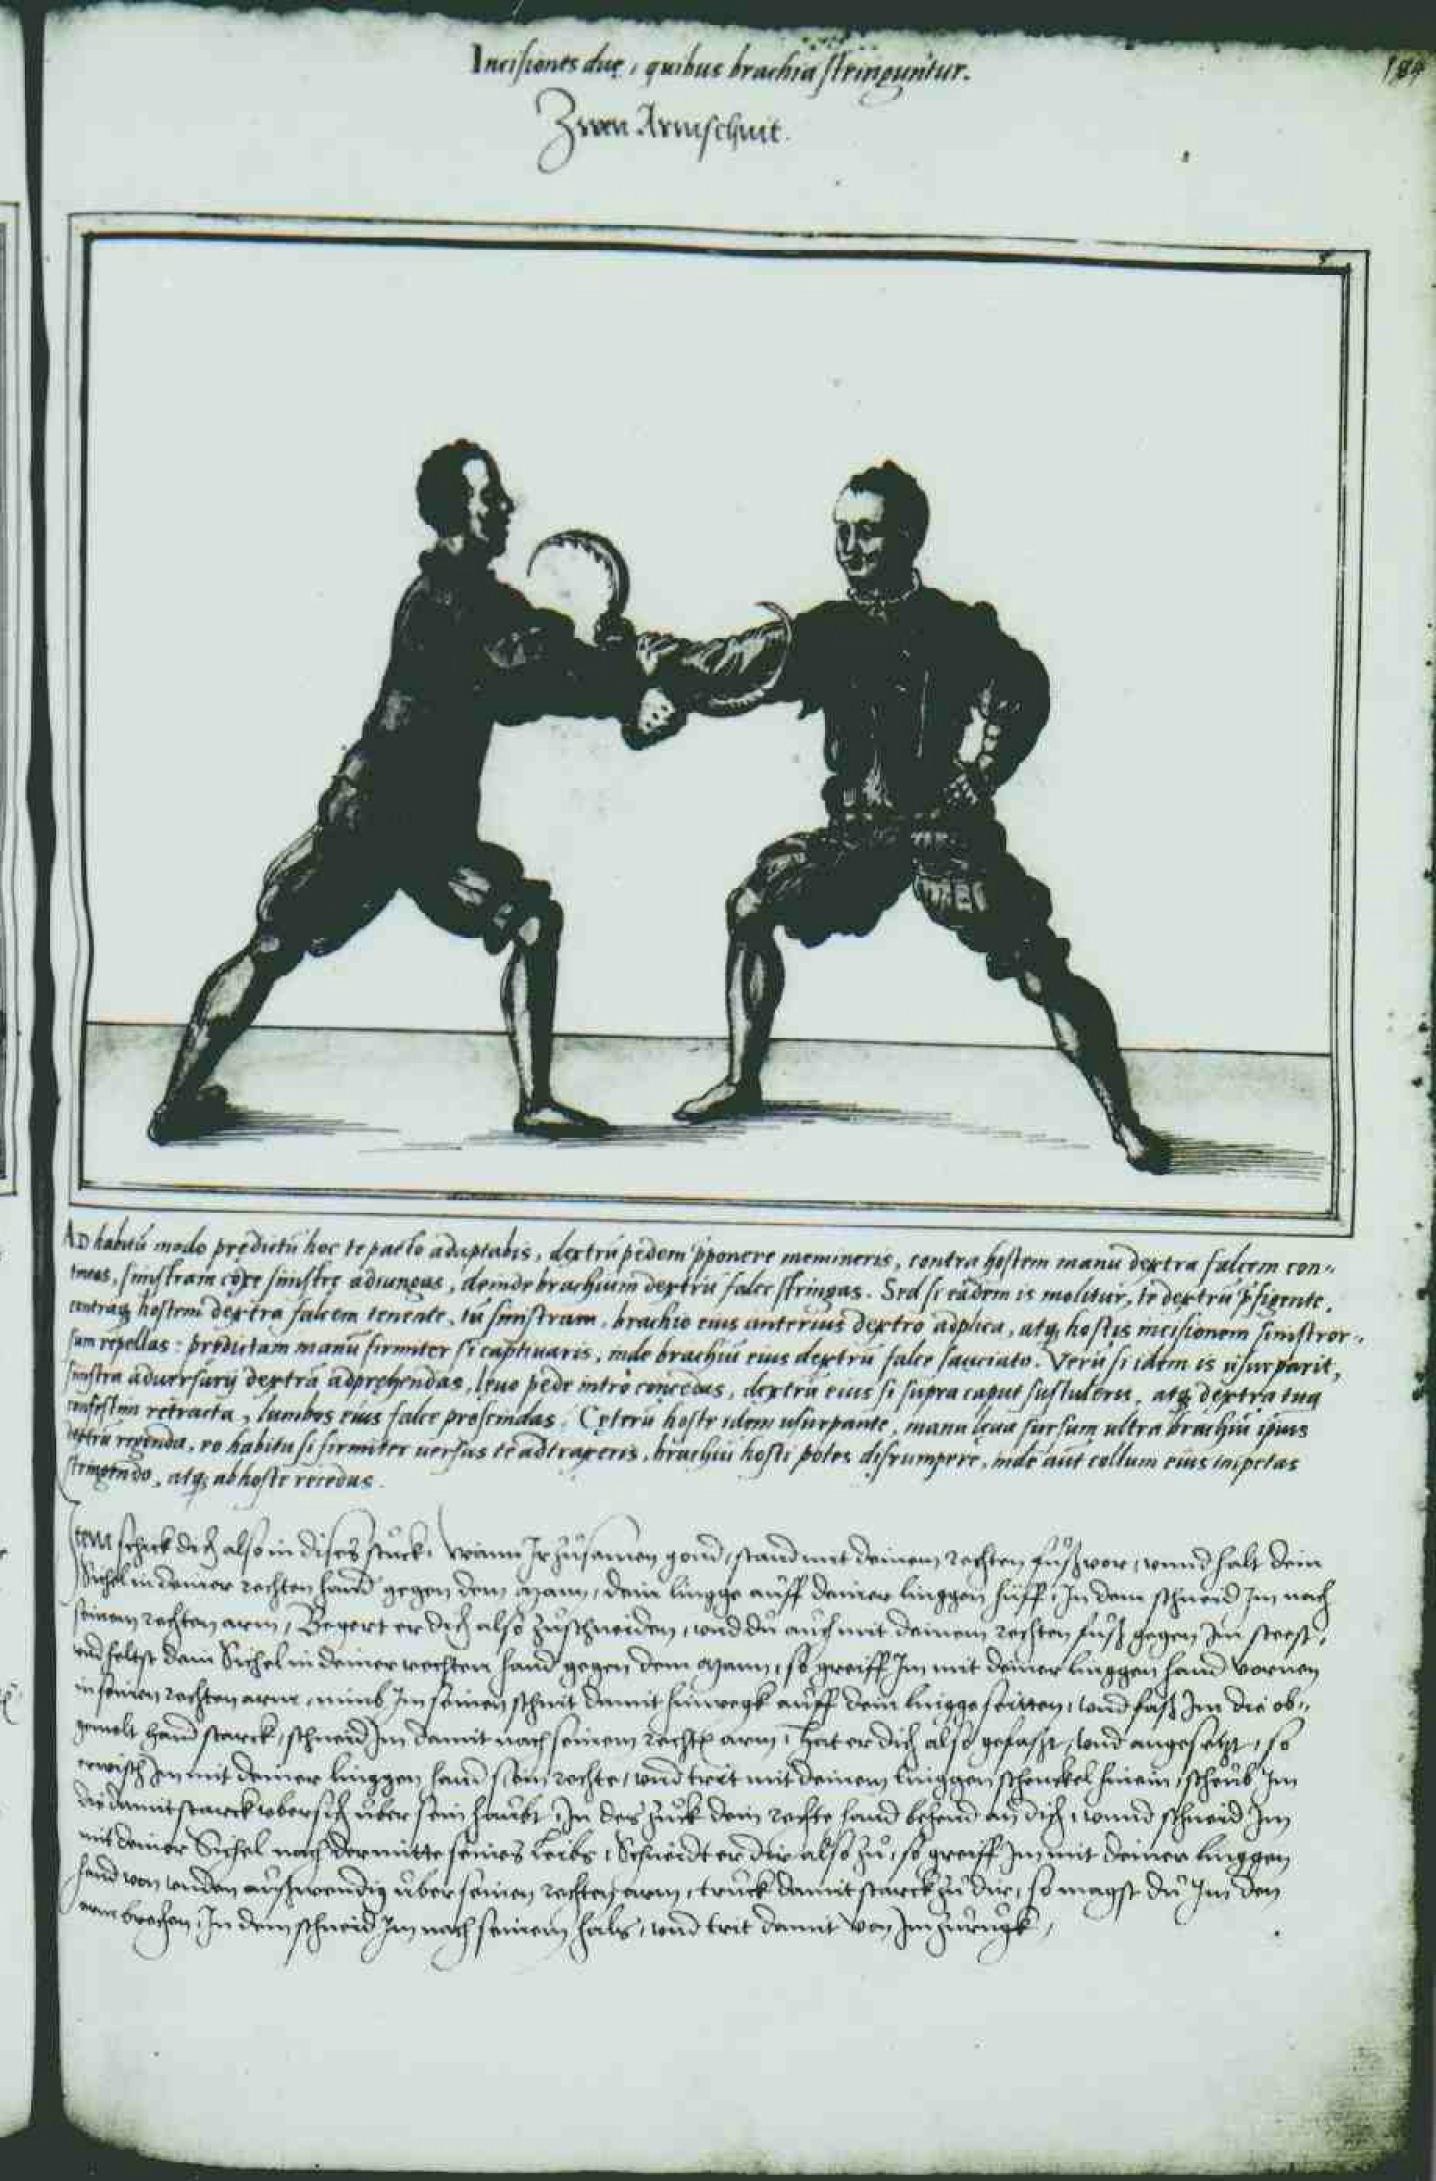 Incisiones duę, quibus brachia stringuntur.
184
Zwen Armschnit.
AD habitũ modo prędictũ hoc te pacto adaptabis, dextrũ pedem p̃ponere memineris, contra hostem manu dextra falcem con-
tineas, sinistram coxę sinistrę adiungas, deinde brachium dextrũ falce stringas. Sed si eadem is molitur, te dextrũ p̃figente,
contraq hostem dextra falcem tenente, tũ sinistram, brachio eius anterius dextro adplica, atq hostis incisionem sinistror-
sum repellas: prędictam manũ firmiter si captiuaris, inde brachiũ eius dextrũ falce sauciato. Verũ si idem is usurparit,
sinistra aduersarij dextrã adpręhendas, lęuo pede intro concedas, dextrã eius si supra caput sustuleris, atq dextra tua
confestim retracta, lumbos eius falce proscindas. Cęterũ hoste idem usurpante, manu lęua sursum ultra brachiũ ipsius
dextrũ iniecta, eo habitu si firmiter uersus te adtraxeris, brachiũ hosti potes disrumpere, inde aut collum eius impetas
stringendo, atq ab hoste recedas.
Item schick dich also in dises stuck, Wann Ir zůsamen gond, stand mit deinem rechten fůß vor, unnd halt dein
Sichel in deiner rechten hand gegen dem Mann, dein lingge auff deiner linggen hüff, In dem schneid Im nach
seinem rechten arm, Begert er dich also zůschneiden, und du auch mit deinem rechten fůß gegen Im steest,
und heltst dein Sichel in deiner rechten hand gegen dem Mann, so greiff Im mit deiner linggen hand vornen
in seinen rechten arm, nimb Im seinen schnit damit hinwegk auff dein lingge seitten, und faß Im die ob-
gemelt hand starck, schneid Im damit nach seinem rechtẽ arm, Hat er dich also gefasst, und angesetzt, so
erwisch Im mit deiner linggen hand sein rechte, und trit mit deinem linggen schenckel hinein, scheub Im
die damit starck ubersich über sein haubt, In des zuck dein rechte hand behend an dich, unnd schneid Im
mit deiner Sichel nach der mitte seines Leibs, Schneidt er dir also zů, so greiff Im mit deiner linggen
hand von unden außwendig über seinen rechten arm, truck damit starck zů dir, so magst du Im den
arm brechen, In dem schneid Im nach seinem hals, und trit damit von Im zůrugk,